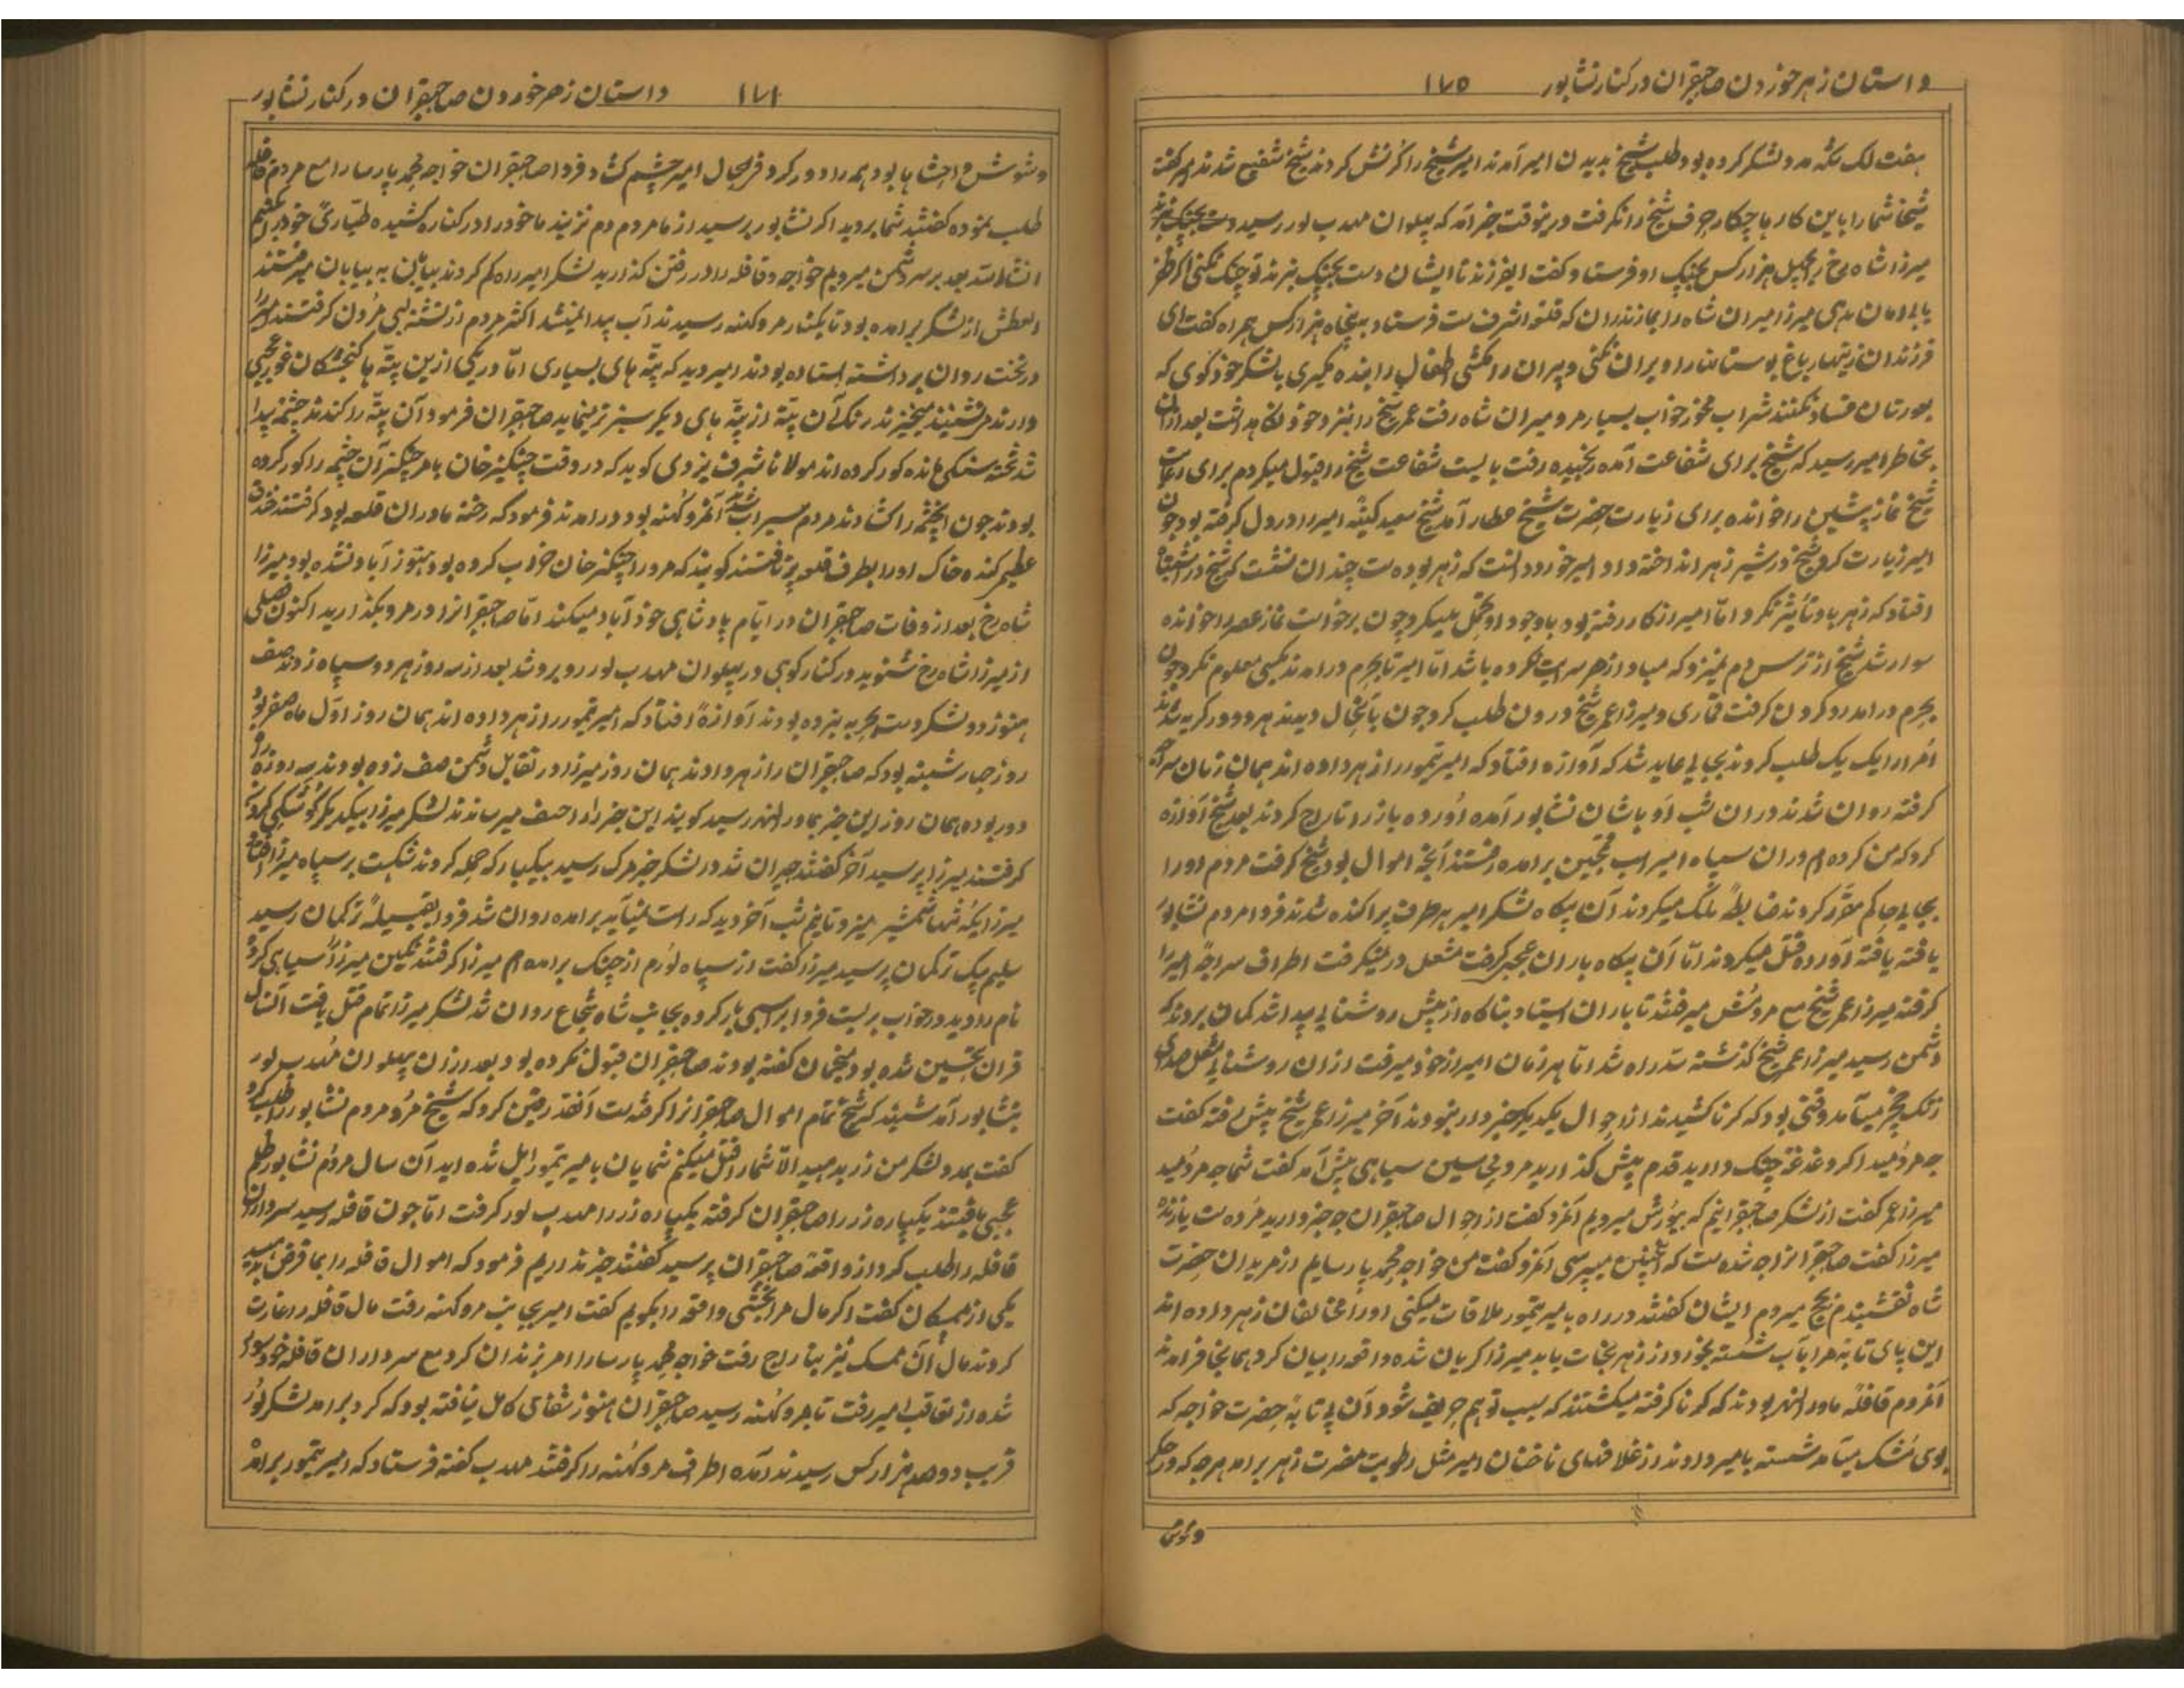 داستان زهر خوردن صاحبقران در کنار نشاپور ۱۷۵
هفت لک تنکه مدد لشکر کرده بود طلب شیخ بدیدن امیر آمدند امیر شیخ را کرنش کردند شیخ شفیع شدند امیر گفت
شیخا شما را باین کار ها چکار حرف شیخ را نگرفت درینوقت خبر آمد که پهلوان مهدب لور رسید دست بجنک نبرند
میرزا شاه رخ را بچهل هزار کس بجنک او فرستاد و کفت ایفرزند تا ایشان دست بجنک نبرند تو جنک نکنی
یابد امان بدهی میرزا میران شاه را بمازندران که قلعه اشرف ست فرستاد به پنجاه هزار کس همراه کفت ای
فرزندان زینهار باغ بوستانها را ویران نکنی و پیران را نکشی اطفال را بنده نگیری بالشکر خود کوی که
بعورتان فساد نکنند شراب مخور خواب بسیار مرو میران شاه رفت عمر شیخ را بنزد خود نگاه داشت بعد از آن
بخاطر امیر رسید که شیخ برای شفاعت آمده رنجیده رفت بایست شفاعت شیخ را قبول میکردم برای رعایت
شیخ نماز پیشین را خوانده برای زیارت حضرت شیخ عطار آمد شیخ سعید کینه امیر را در دل کرفته بود چون
امیر زیارت کرد شیخ در شیر زهر انداخته داد امیر خورد دانست که زهر بوده ست چندان نشست که شیخ
افتاد که زهر باو تأثیر نکرد اما امیر از کار رفته بود باوجود او تحمل میکرد چون برخواست نماز عصر را خوانده
سوار شد شیخ از ترس دم نمیزد که مبادا زهر سرایت نکرده باشد اما امیر تا بحرم درامدند کسی معلوم نکرد چون
بحرم درامد رو کردن کرفت قماری و میرزا عمر شیخ درون طلب کرد چون باینحال دیدند هر دو در کریه شدند
امرا را یک یک طلب کردند بجایی عاید شد که آوازه افتاد که امیر تیمور را زهر داده اند همان زمان
کرفته روان شدند دران شب اوباشان نشاپور آمده اورده بازار را تاراج کردند بعد شیخ آوازه
کرد که من کرده ام دران سپاه امیر برامده رفتند آنچه اموال بود شیخ کرفت مردم او را
بجایی حاکم مقرر کردند ضابطه ملک میکردند آن پکاه لشکر امیر بهر طرف پراکنده شدند فردا مردم نشاپور
یافته یافته آورده قتل میکردند اما آن پکاه باران عجب کرفت مشعل در نمیکرفت اطراف سراچه امیر را
کرفته میرزا عمر شیخ مع مردمش میرفتند تا باران ایستاد بناکاه از پیش روشنایی پیدا شد کمان بردند که
دشمن رسید میرزا عمر شیخ کذشته سد راه شد اما هر زمان امیر از خود میرفت ازان روشنایی مشعل صدای
زنک میآمد وقتی بود که کرنا کشیدند از احوال یکدیکر خبردار نبودند آخر میرزا عمر شیخ پیش رفته کفت
چه مردمید اکر دغدغه جنک دارید قدم پیش کذارید مردی سیاهی پیش آمد کفت شما چه مردمید
میرزا عمر کفت از لشکر صاحبقرانیم که بیورش میرویم آنمرد کفت از احوال صاحبقران چه خبر دارید مرده ست یا زنده
میرزا کفت صاحبقرانرا چه شده ست که اینچنین میپرسی آنمرد کفت من خواجه محمد پارسایم از مریدان حضرت
شاه نقشبندم بحج میروم ایشان کفتند در راه بامیر تیمور ملاقات میکنی او را مخالفان زهر داده اند
این پای تابه مرا بآب شسته بخورد از زهر نجات یابد میرزا کریان شده واقعه را بیان کرد همانجا فرامدند
آنمردم قافله ماوراالنهر بودند که کرنا کرفته میکشتند که سبب توهم حریف شود آن پی تابه حضرت خواجه که
بوی مشک میآمد شسته بامیر دادند از غلافهای ناخنان امیر مثل رطوبت مضرت زهر برامد هرچه که در حکم
و غوش
داستان زهر خوردن صاحبقران در کنار نشاپور ۱۷۶
و غوش و احشاها بود همه را دور کرد فی الحال امیر چشم کشاد فردا صاحبقران خواجه محمد پارسا را مع مردم قافله
طلب نموده کفتند شما بروید اکر نشاپور برسید از ما مردم دم نزنید ما خود را در کنار کشیده طیاری خود را میکنیم
انشاالله بعد بر سر دشمن میرویم خواجه و قافله را در رفتن کذارید لشکر امیر راه کم کردند بیابان به بیابان میرفتند
العطش از لشکر برامده بود تا بکنار مرو کهنه رسیدند آب پیدا نمیشد اکثر مردم از تشنه لبی مردن کرفتند امیر را
در تخت روان برداشته ایستاده بودند امیر دید که پشته های بسیاری اما در یکی ازین پشته ها کنجشکان غوغای عجبی
دارند مینشینند میخیزند رنک آن پشته از پشته های دیکر سبز تر مینماید صاحبقران فرمود آن پشته را کندند چشمه پیدا
شد تخته سنکی مانده کور کرده اند مولانا شرف یزدی کوید که در وقت چنکیز خان بامر چنکیز آن چشمه را کور کرده
بودند چون اینچشمه را کشادند مردم سیراب شدند آنمرو کهنه بود درامدند فرمود که رخنه مادران قلعه بود کرفتند خندق
عظیم کنده خاک او را بطرف قلعه پرتافتند کویند که مرو را چنکیز خان خراب کرده بود هنوز آباد نشده بود میرزا
شاه رخ بعد از وفات صاحبقران در ایام پادشاهی خود آباد میکند اما صاحبقرانرا در مرو بکذارید اکنون فصلی
از میرزا شاه رخ شنوید در کنار کوهی در پهلوان مهدب لور روبرو شد بعد از سه روز هر دو سپاه زدند صف
هنوز دو لشکر دست بحربه نبرده بودند آوازه افتاد که امیر تیمور را زهر داده اند همان روز اول ماه صفر بود
روز چهارشنبه بود که صاحبقران را زهر دادند همان روز میرزا در تقابل دشمن صف زده بودند سه روزه راه
دور بوده همان روز این خبر بماوراالنهر رسید کویند این خبر را میرساندند لشکر میرزا بیکدیکر کوشکی کردن
کرفتند میرزا پرسید آخر کفتند حیران شد در لشکر خبر مرک رسید بیکبار که حمله کردند شکست بر سپاه میرزا افتاد
میرزا یکه تنها شمشیر میزد تا نیم شب آخر دید که راست نمیآید برامده روان شد فردا بقبیله ترکمان رسید
سلیم بیک ترکمان پرسید میرزا کفت از سپاه لورم از جنک برامده ام میرزا کرفتند نکین میرزا سیاهی کرد
نام را دید در جواب بریست فردا بر اسپی بار کرده بجانب شاه شجاع روان شد لشکر میرزا تمام قتل یافت آنسال
قران نحسین شده بود منجمان کفته بودند صاحبقران قبول نکرده بود بعد از آن پهلوان مهدب لور
بنشاپور آمد شنید که شیخ تمام اموال صاحبقرانرا کرفته ست آنقدر یقین کرد که شیخ مرد مردم نشاپور را طلب کرد
کفت بمدد لشکر من زر بدهید الا شما را قتل میکنم شمایان بامیر تیمور ایل شده اید آن سال مردم نشاپور ظلم
عجبی یافتند یکپاره زر را صاحبقران کرفته یکپاره زر را مهدب لور کرفت اما چون قافله رسید سرداران
قافله را طلب کرد از واقعه صاحبقران پرسید کفتند خبر نداریم فرمود که اموال قافله را بما قرض بدهید
یکی از ممسکان کفت اکر مال مرا بخشی واقعه را بکویم کفت امیر بجانب مرو کهنه رفت مال قافله را غارت
کردند مال آن ممسک نیز بتاراج رفت خواجه محمد پارسا را امر بزندان کرد مع سرداران قافله خود سوار
شده از تعاقب امیر رفت تا بمرو کهنه رسید صاحبقران هنوز شفای کامل نیافته بود که کرد برامد لشکر لور
قریب دوصد هزار کس رسیدند آمده اطراف مرو کهنه را کرفتند مهدب کفته فرستاد که امیر تیمور برامد